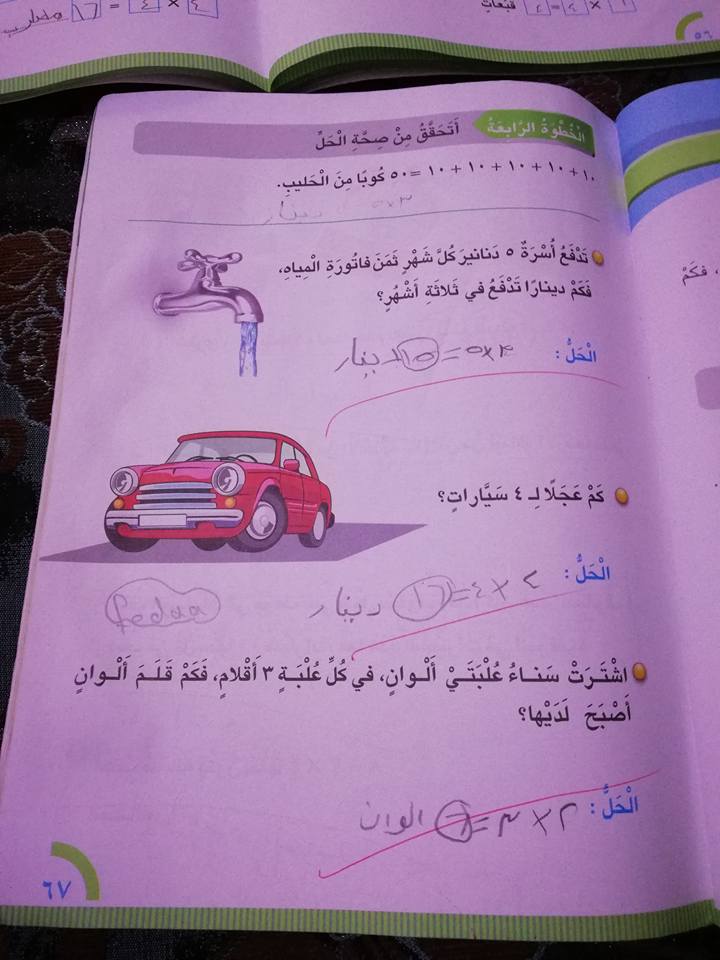 ٤ × ٤ = ١٦
قبعات
٥٦
الْخُطْوَةُ الرَّابِعَةُ أَتَحَقَّقُ مِنْ صِحَّةِ الْحَلِّ
١٠ + ١٠ + ١٠ + ١٠ + ١٠ = ٥٠ كُوبًا مِنَ الْحَليبِ.
تَدْفَعُ أُسْرَةٌ ٥ دَنانيرَ كُلَّ شَهْرٍ ثَمَنَ فاتُورَةِ الْمِياهِ،
فَكَمْ دينارًا تَدْفَعُ في ثَلاثَةِ أَشْهُرٍ؟
الْحَلُّ: ٣×٥=١٥ دينار
كَمْ عَجَلًا لِـ ٤ سَيَّاراتٍ؟
الْحَلُّ: ٤×٤=١٦ دينار
fedaa
اشْتَرَتْ سَناءُ عُلْبَتَيْ أَلْوانٍ، في كُلِّ عُلْبَةٍ ٣ أَقْلامٍ، فَكَمْ قَلَمَ أَلْوانٍ
أَصْبَحَ لَدَيْها؟
الْحَلُّ: ٢×٣=٦ الوان
٦٧
، فَكَمْ